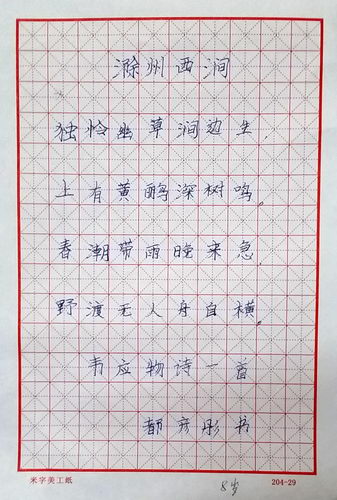 滁州西涧
独怜幽草涧边生，
上有黄鹂深树鸣。
春潮带雨晚来急，
野渡无人舟自横。
韦应物诗一首
彦彤书
米字美工纸 204-29
8岁